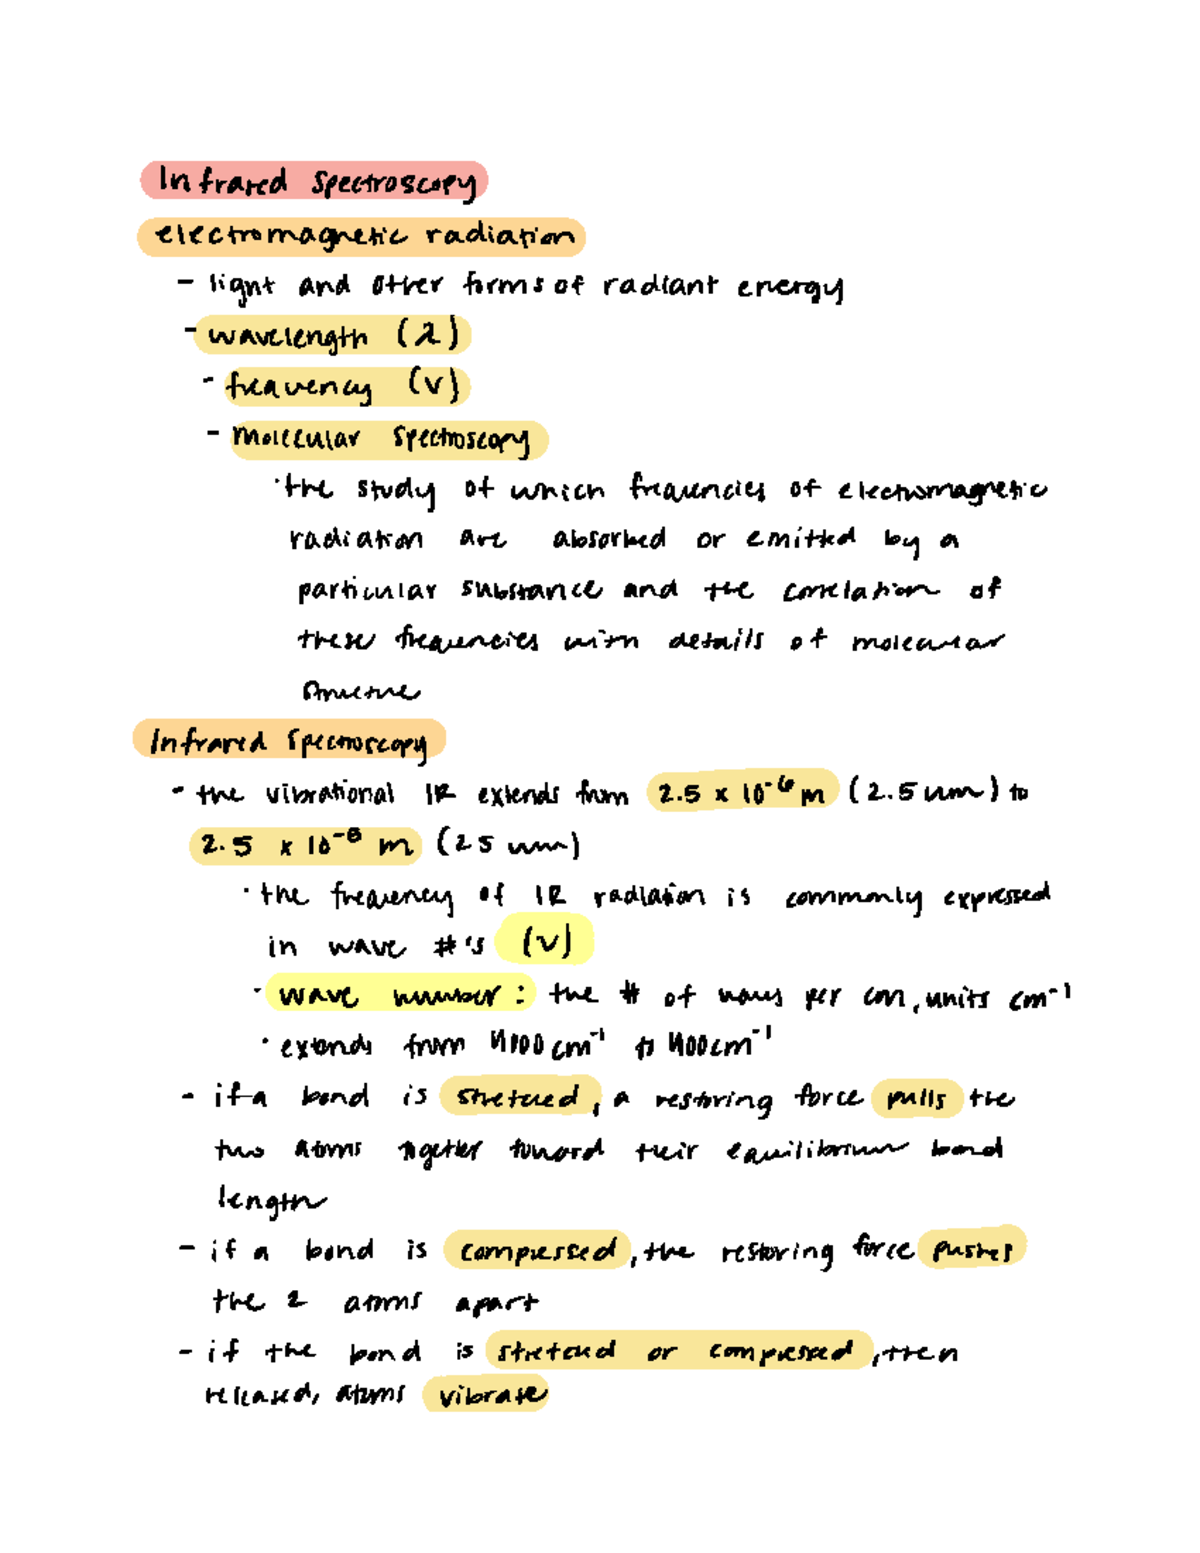 Infrared Spectroscopy
electromagnetic radiation
- light and other forms of radiant energy
- wavelength (λ)
- frequency (v)
- molecular spectroscopy
· the study of which frequencies of electromagnetic
radiation are absorbed or emitted by a
particular substance and the correlation of
these frequencies with details of molecular
structure
Infrared Spectroscopy
- the vibrational IR extends from 2.5 x 10⁻⁶ m (2.5 um) to
2.5 x 10⁻⁵ m (25 um)
· the frequency of IR radiation is commonly expressed
in wave #'s (v)
· wave number: the # of waves per cm, units cm⁻¹
· extends from 4000 cm⁻¹ to 400 cm⁻¹
- if a bond is stretched, a restoring force pulls the
two atoms together toward their equilibrium bond
length
- if a bond is compressed, the restoring force pushes
the 2 atoms apart
- if the bond is stretched or compressed, then
released, atoms vibrate